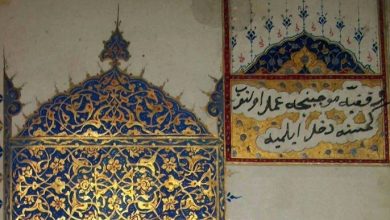 وقفيه موجبنجه عمل اولنوب
كمسنه دخل ايلميه